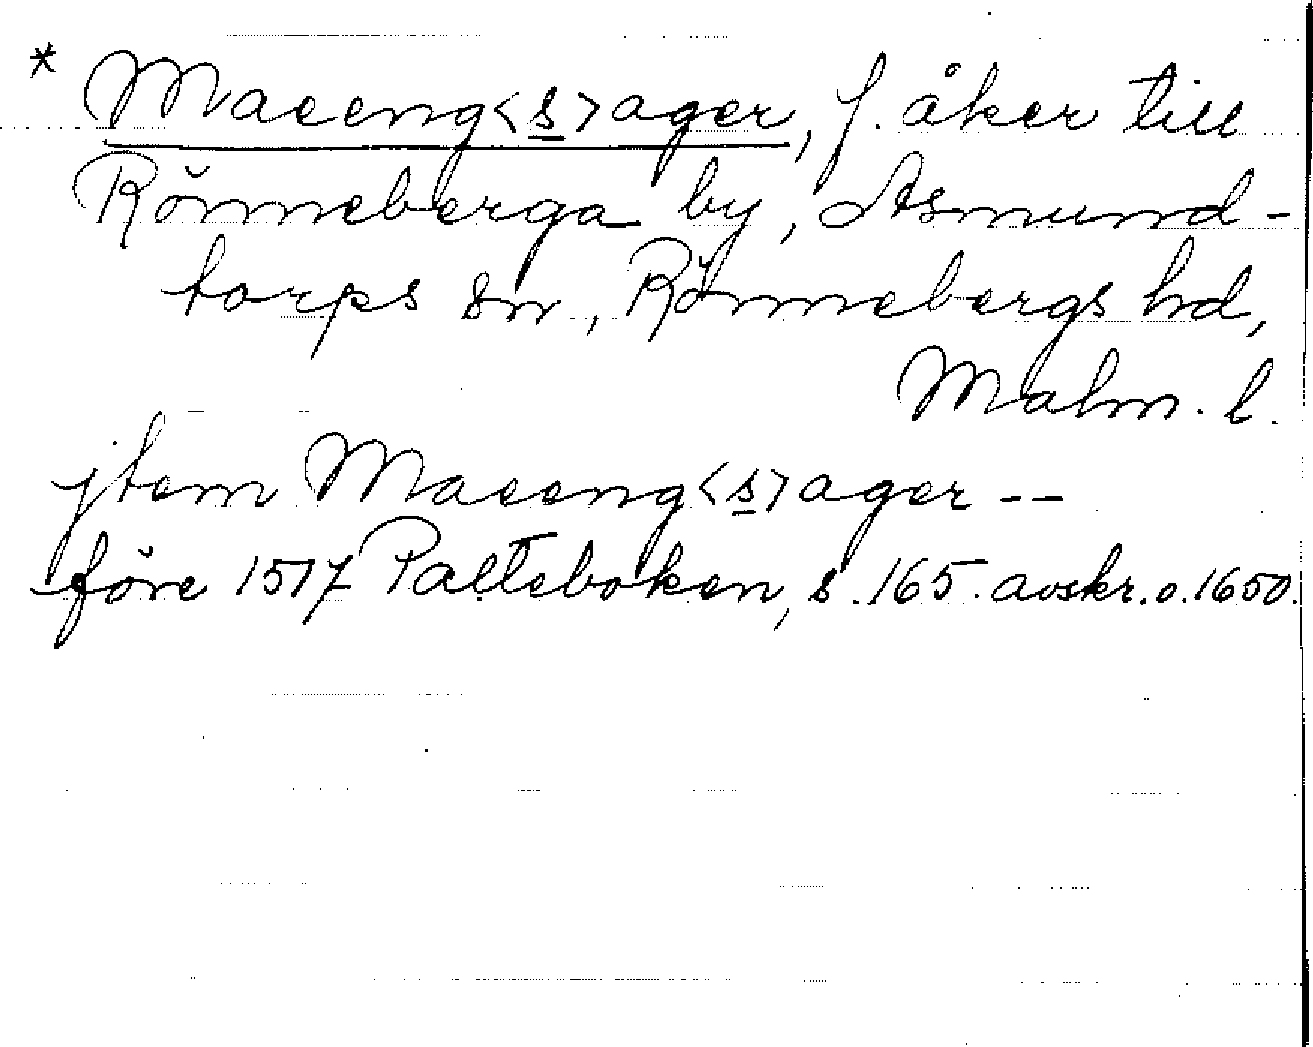 * Maeeng<s>ager, f. åker till
Rönneberga by, Asmund-
torps sn, Rönnebergs hd,
Malm. l.
jtem Maeeng<s>ager --
före 1517 Palteboken, s. 165. avskr. o. 1650.